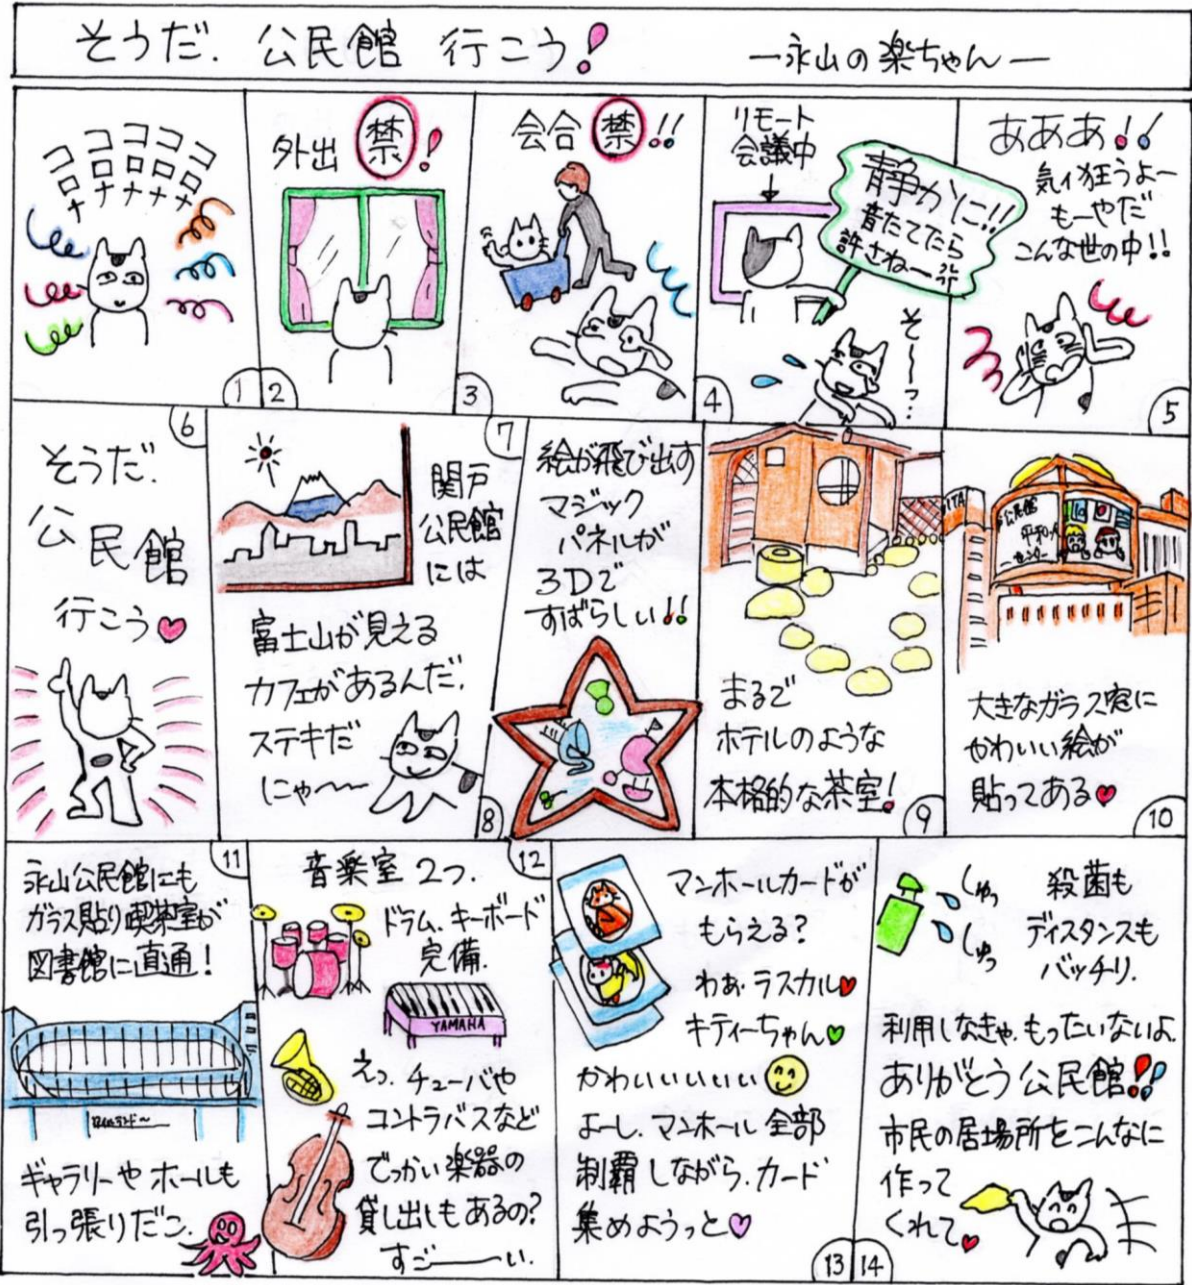 そうだ、公民館 行こう!
―永山の楽ちゃん―
コロナ
コロナ
コロナ
コロナ
コロナ
①
外出 禁!
②
会合 禁!!
③
リモート
会議中
静かに!!
音たてたら
許さねー
そ〜〜っ…
④
あああ!!
気ィ狂うよー
もーやだ
こんな世の中!!
⑤
⑥
そうだ、
公民館
行こう♥
⑦
関戸
公民館
には
富士山が見える
カフェがあるんだ。
ステキだ
にゃ〜〜
絵が飛び出す
マジック
パネルが
3Dで
すばらしい!!
⑧
まるで
ホテルのような
本格的な茶室!
⑨
VITA
公民館
平和・人
センター
大きなガラス窓に
かわいい絵が
貼ってある♥
⑩
⑪
永山公民館にも
ガラス貼り喫茶室が
図書館に直通!
ギャラリーやホールも
引っ張りだこ。
⑫
音楽室 2つ。
ドラム、キーボード
完備。
YAMAHA
えっ、チューバや
コントラバスなど
でっかい楽器の
貸し出しもあるの?
すご――い。
マンホールカードが
もらえる?
わぁ、ラスカル♥
キティーちゃん♥
かわいいいいい
よーし、マンホール全部
制覇しながら、カード
集めようっと♥
⑬
しゅっ
しゅっ
殺菌も
ディスタンスも
バッチリ。
利用しなきゃ、もったいないよ。
ありがとう公民館!!
市民の居場所をこんなに
作って
くれて♥
⑭